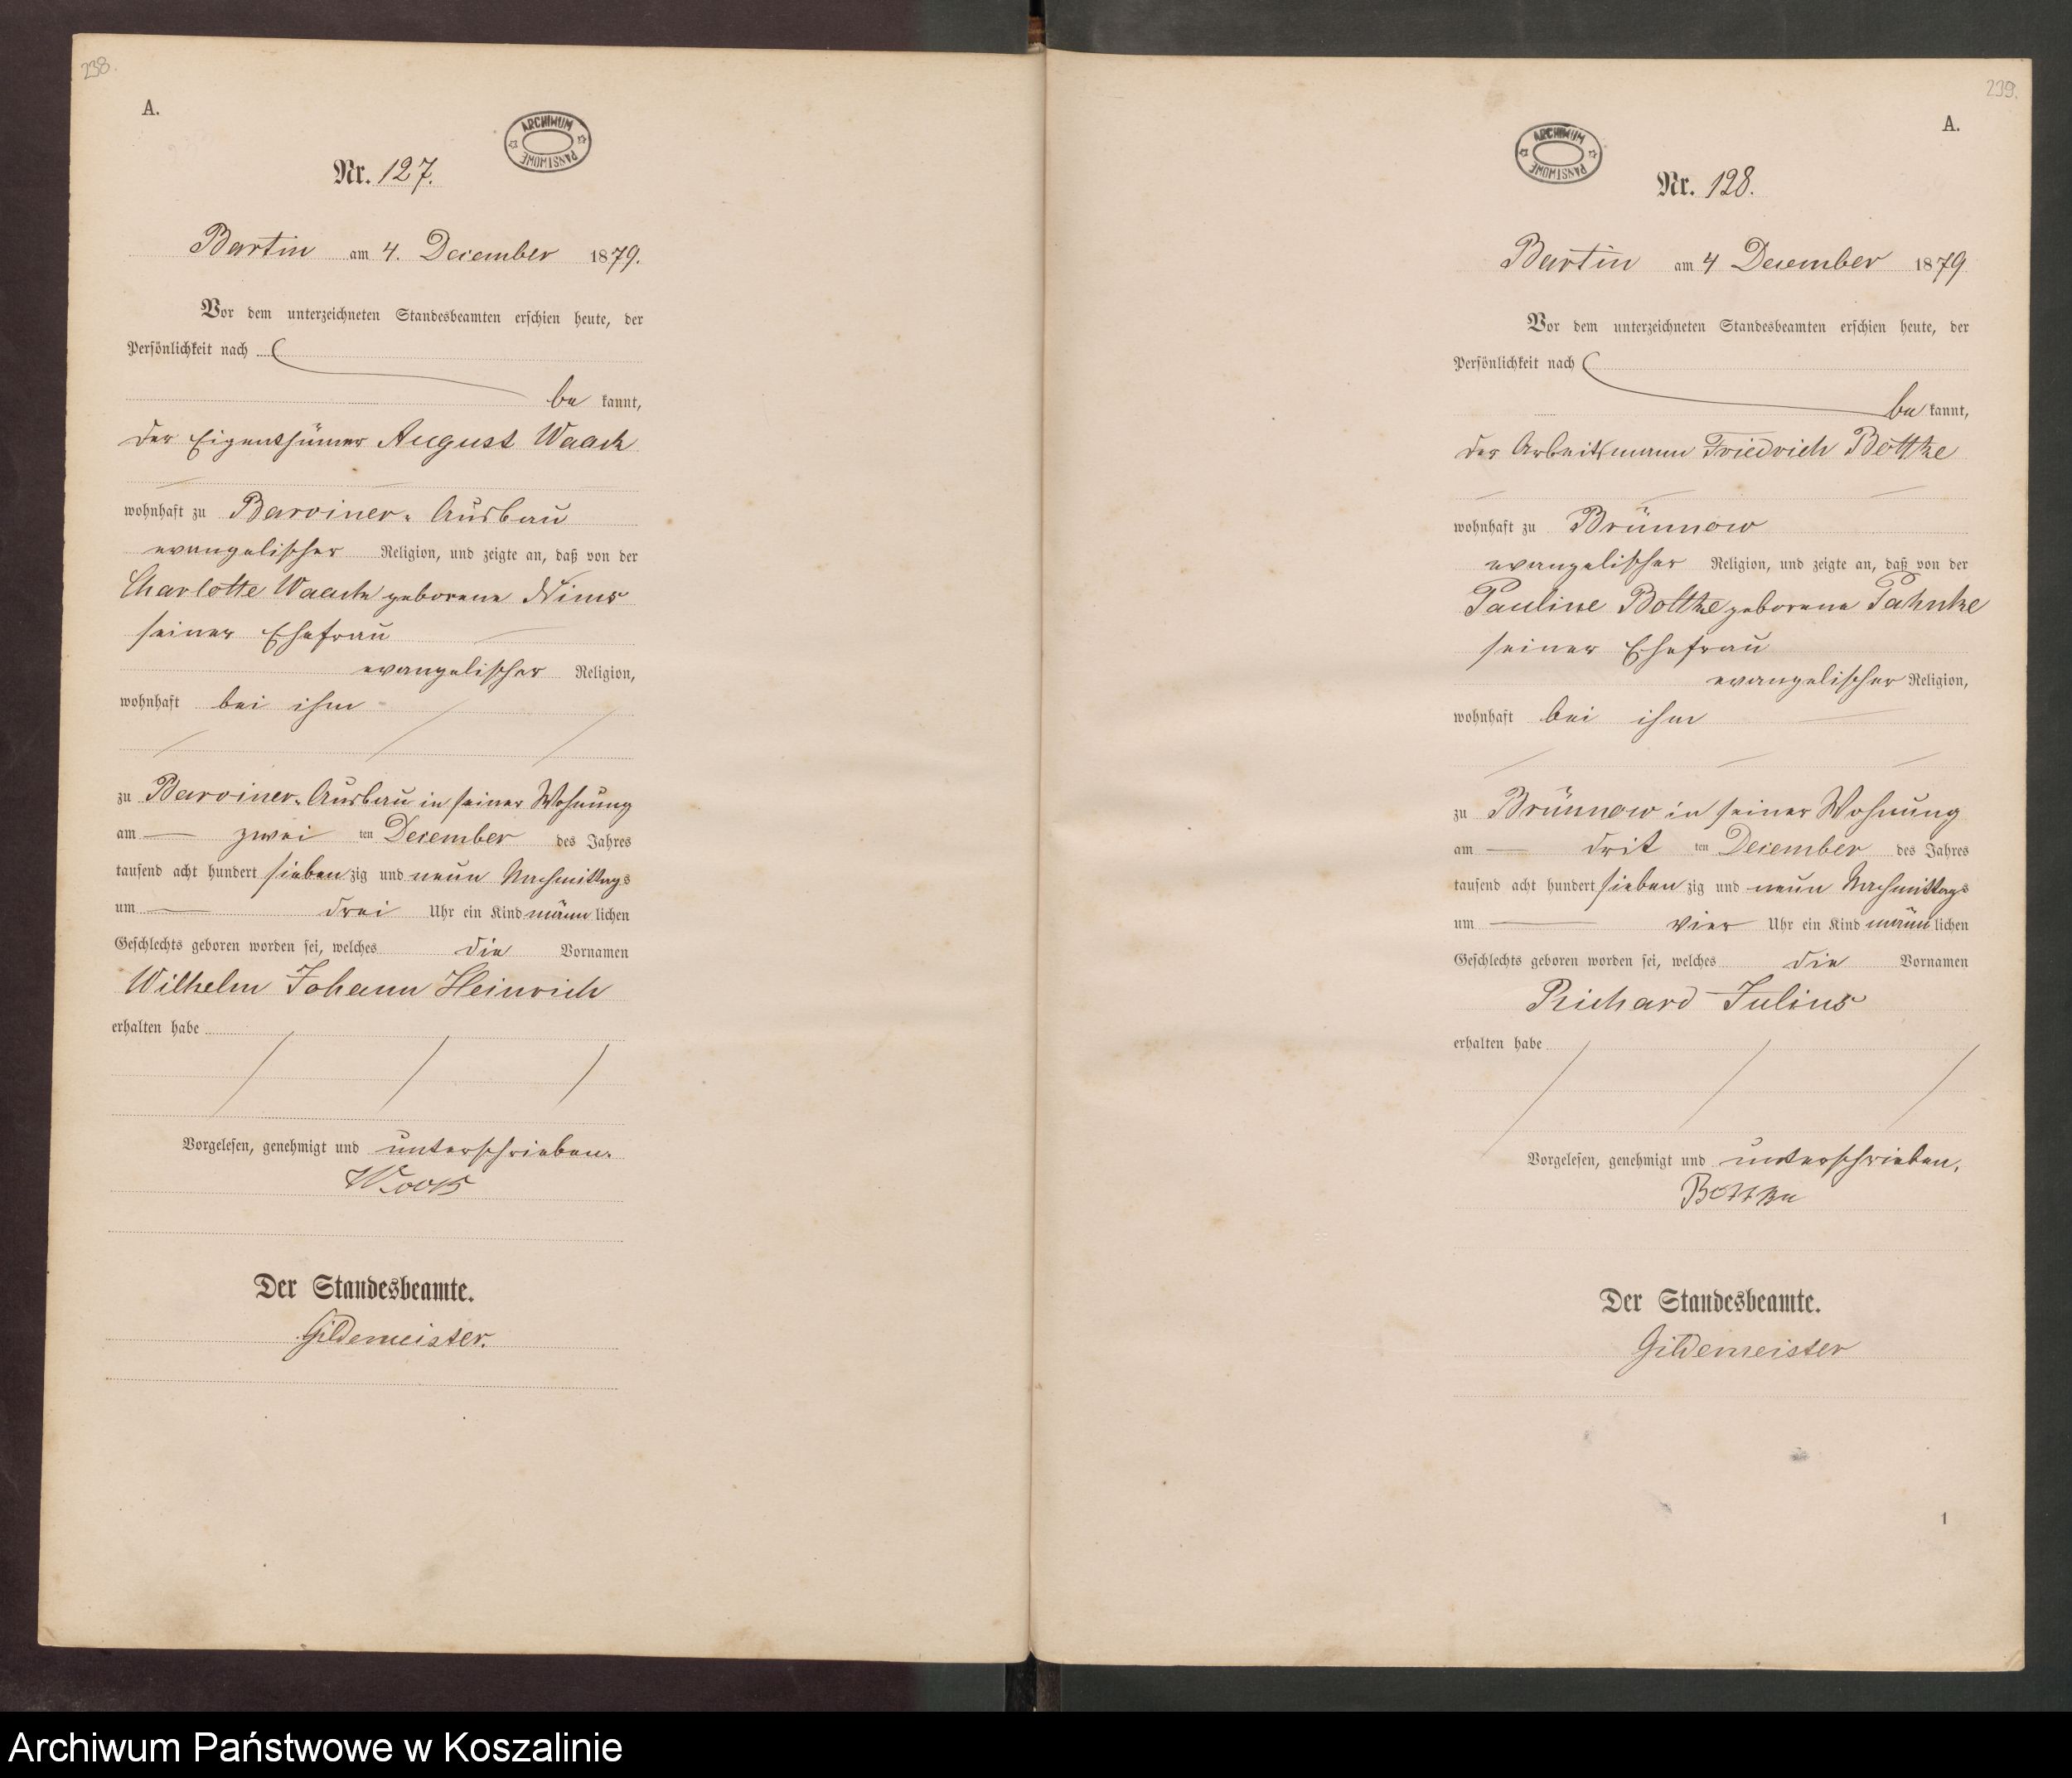 238.
A.
ARCHIWUM PAŃSTWOWE
Nr. 127.
Bartin am 4. December 1879.
Vor dem unterzeichneten Standesbeamten erschien heute, der
Persönlichkeit nach
be kannt,
der Eigenthümer August Waack
wohnhaft zu Barviner-Ausbau
evangelischer Religion, und zeigte an, daß von der
Charlotte Waack geborene
seiner Ehefrau
evangelischer Religion,
wohnhaft bei ihm
zu Barviner-Ausbau in seiner Wohnung
am zwei ten December des Jahres
tausend acht hundert sieben zig und neun Nachmittags
um drei Uhr ein Kind männ lichen
Geschlechts geboren worden sei, welches die Vornamen
Wilhelm Johann Heinrich
erhalten habe
Vorgelesen, genehmigt und unterschrieben.
Der Standesbeamte.
Gildemeister.
239.
A.
ARCHIWUM PAŃSTWOWE
Nr. 128.
Bartin am 4 December 1879
Vor dem unterzeichneten Standesbeamten erschien heute, der
Persönlichkeit nach
be kannt,
der Arbeitsmann Friedrich Böttke
wohnhaft zu Brünnow
evangelischer Religion, und zeigte an, daß von der
Pauline Böttke geborene Pahnke
seiner Ehefrau
evangelischer Religion,
wohnhaft bei ihm
zu Brünnow in seiner Wohnung
am drit ten December des Jahres
tausend acht hundert sieben zig und neun Nachmittags
um vier Uhr ein Kind männ lichen
Geschlechts geboren worden sei, welches die Vornamen
Richard Julius
erhalten habe
Vorgelesen, genehmigt und unterschrieben.
Böttke
Der Standesbeamte.
Gildemeister
1
Archiwum Państwowe w Koszalinie